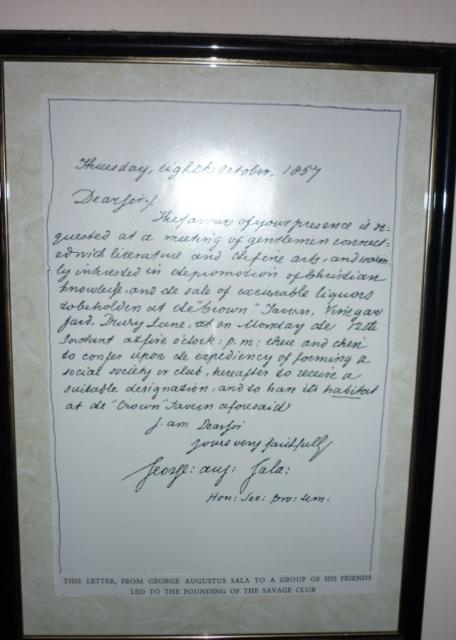 Thursday, eighth October, 1857
Dear Sir,
The favour of your presence is re-
quested at a meeting of gentlemen connect-
ed with literature and the fine arts, and warm-
ly interested in the promotion of Christian
knowledge, and the sale of exciseable liquors
to be holden at the "Crown" Tavern, Vinegar
Yard, Drury Lane, on Monday the 12th
Instant at five o'clock: p.m; there and then
to confer upon the expediency of forming a
social society or club, hereafter to receive a
suitable designation, and to have its habitat
at the "Crown" Tavern aforesaid
I am Dear Sir
Yours very faithfully
George: Aug: Sala:
Hon: Sec: pro: tem:
THIS LETTER, FROM GEORGE AUGUSTUS SALA TO A GROUP OF HIS FRIENDS
LED TO THE FOUNDING OF THE SAVAGE CLUB